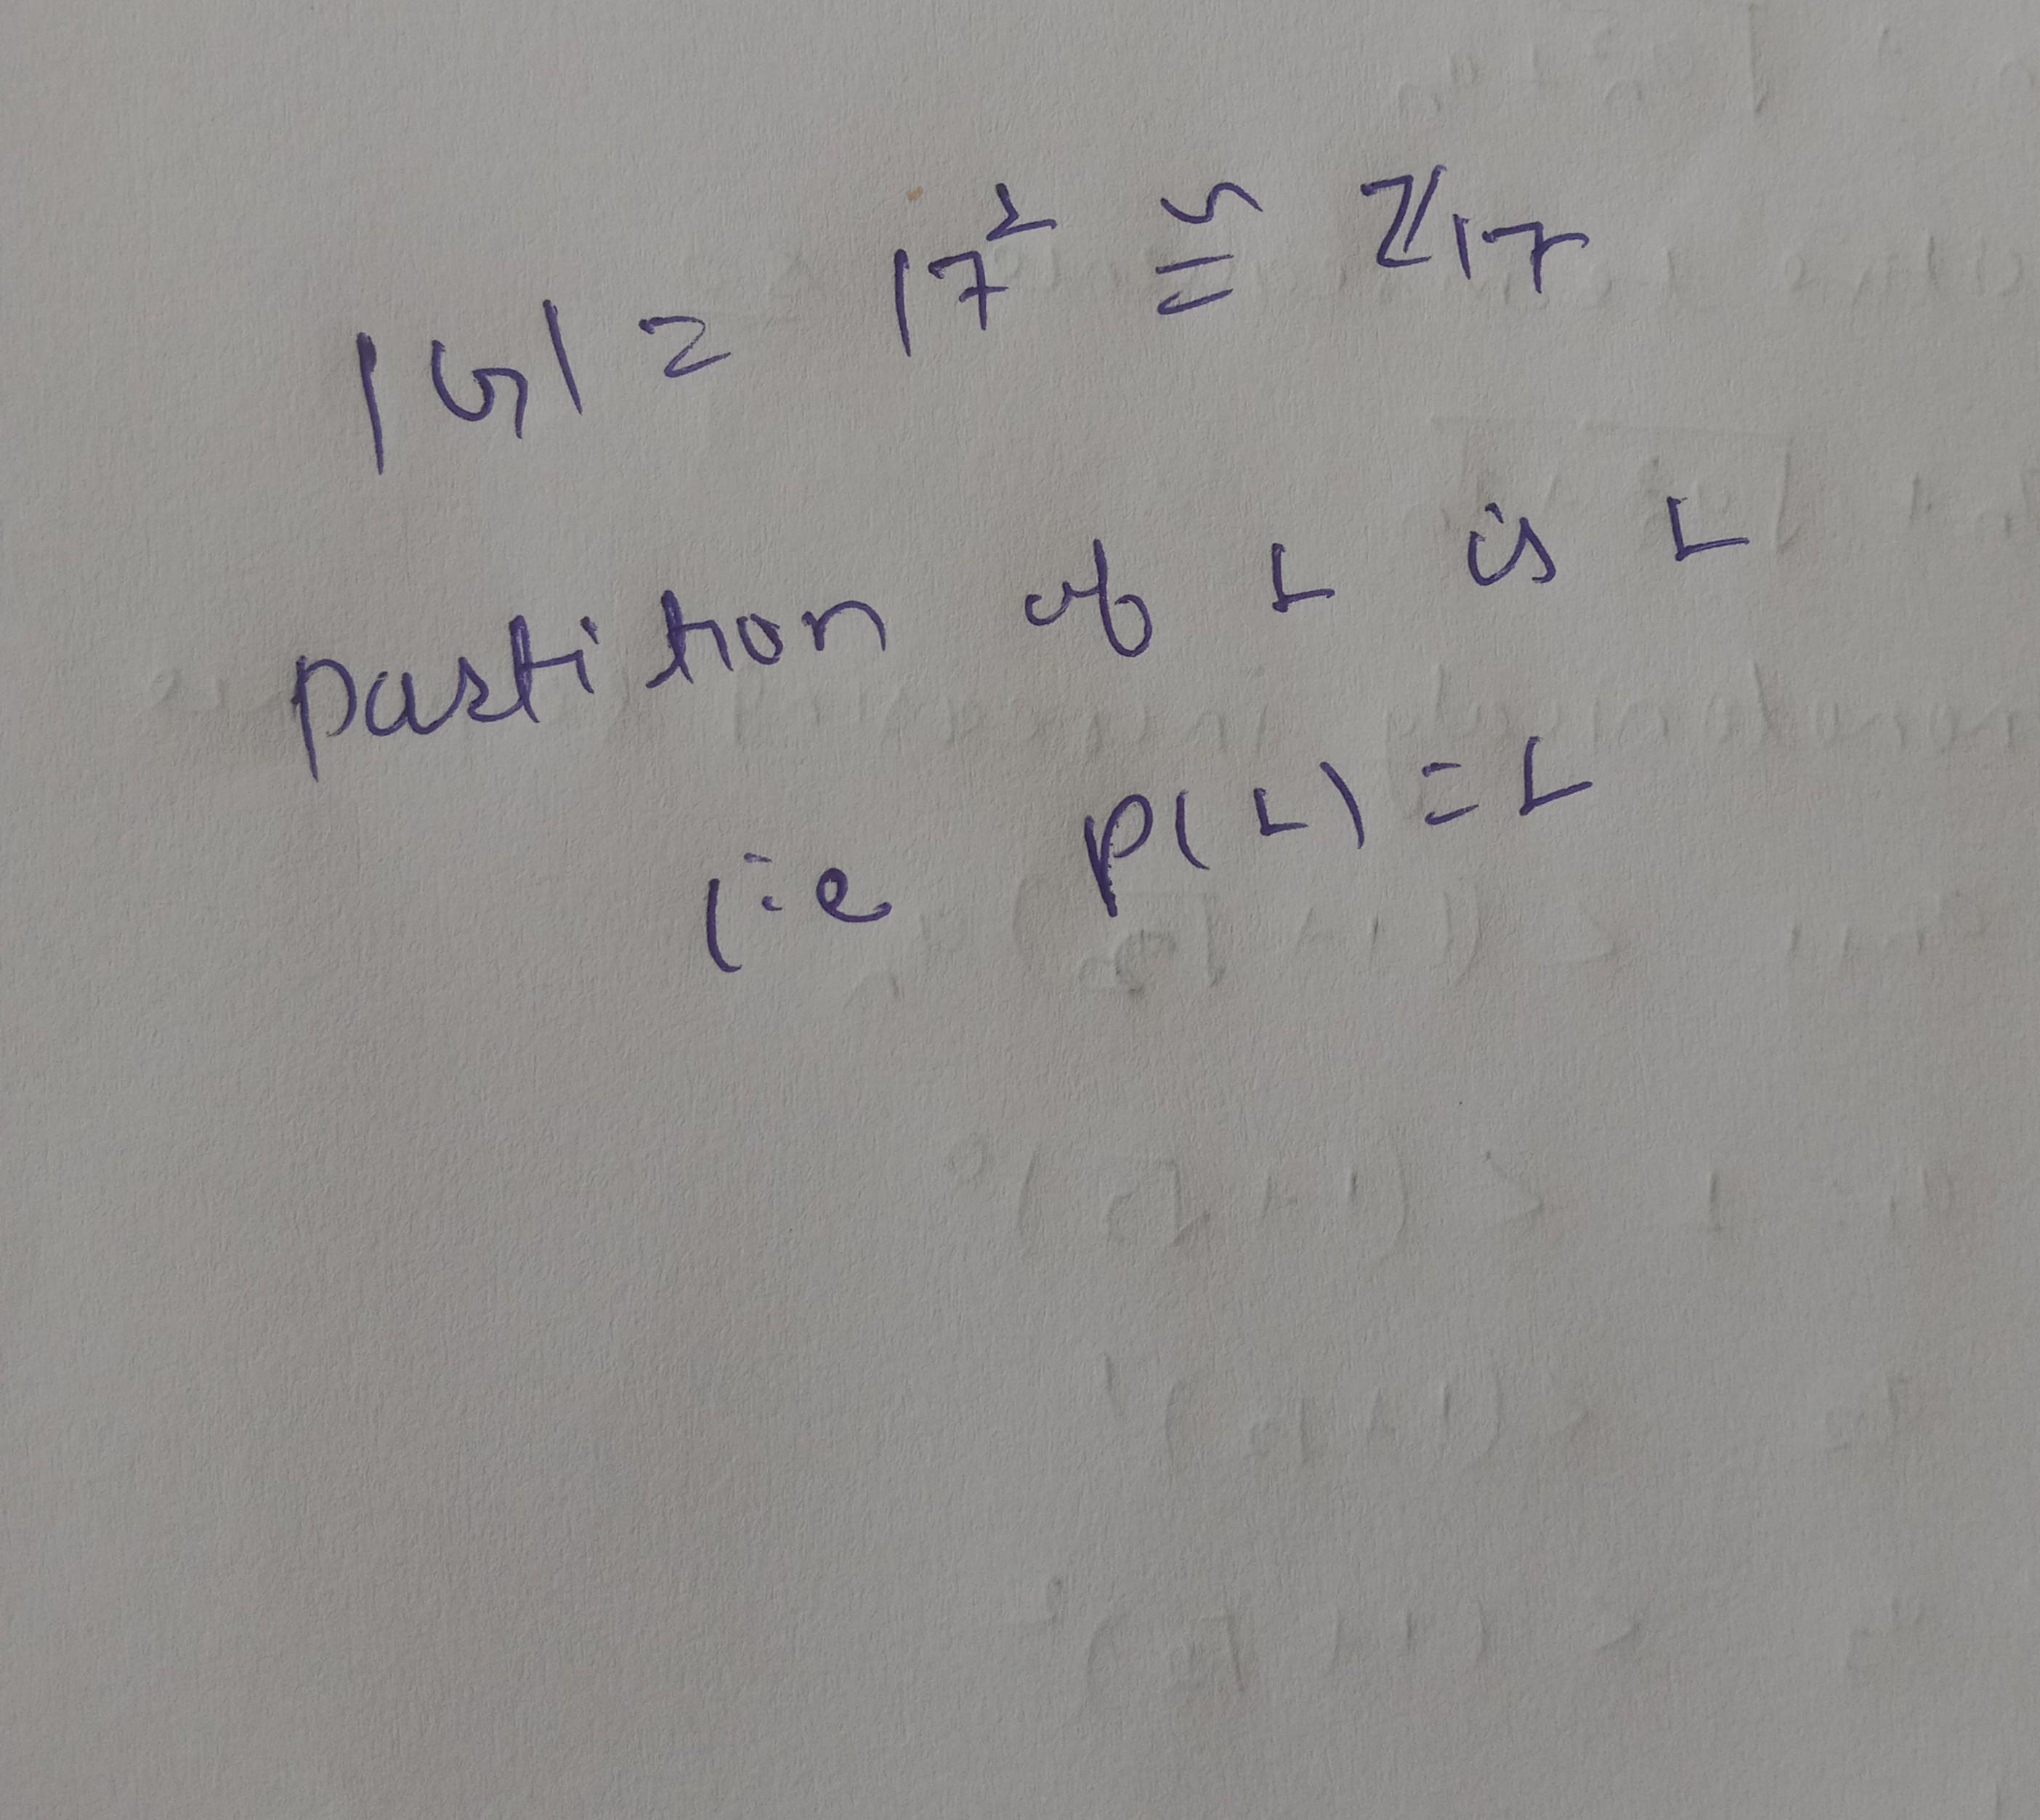 |G| = 17² ≅ ℤ₁₇
Partition of 2 is 2
i.e P(2) = 2